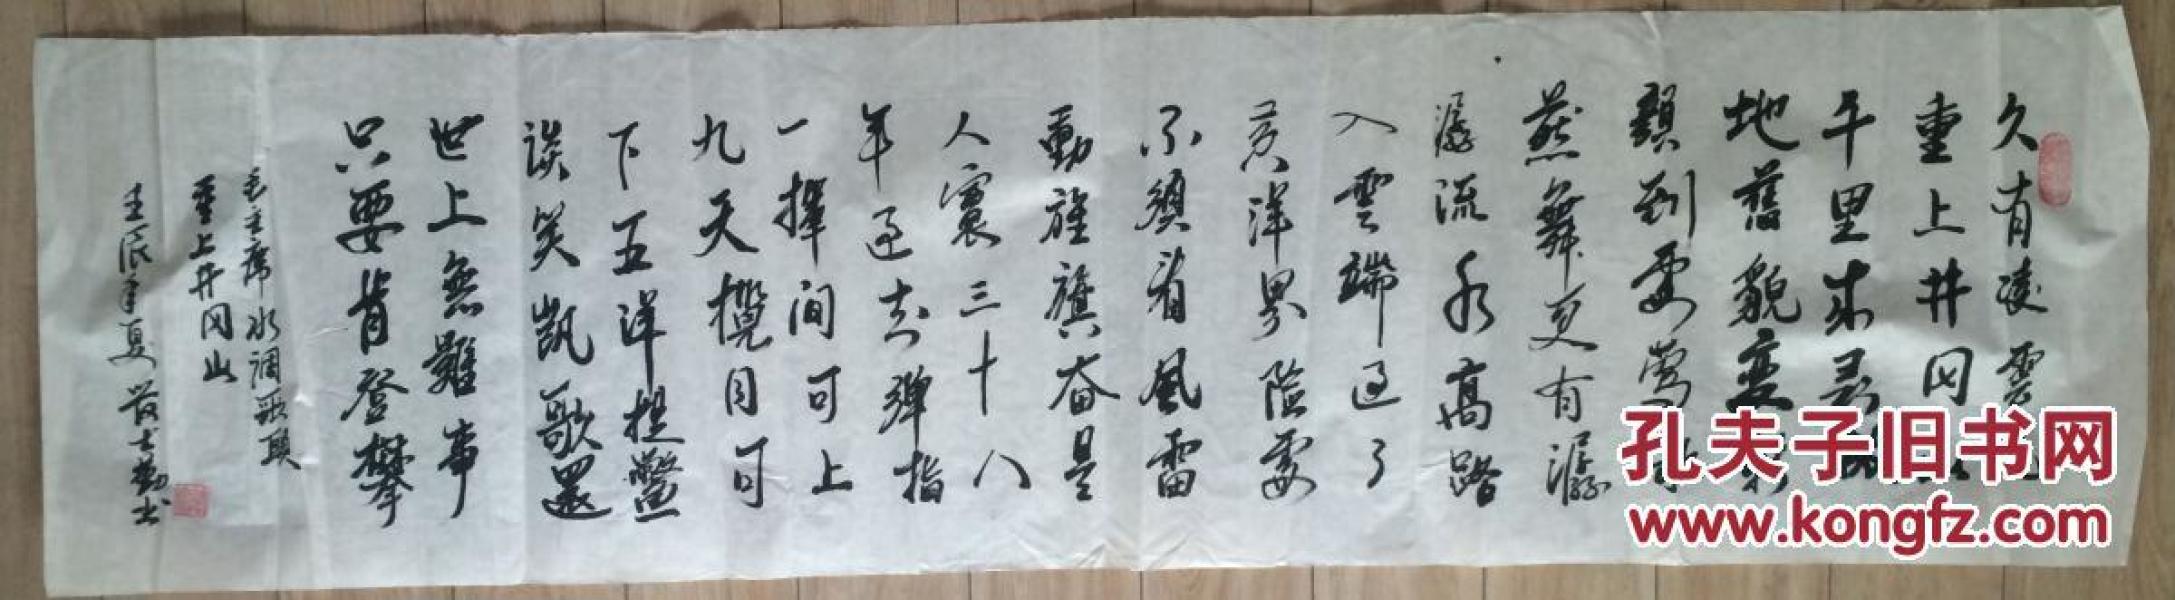 久有凌雲
重上井冈
千里来寻
地舊貌變
颖到處莺
燕舞更有潺
潺流水高路
入雲端过了
黄洋界险處
不须看風雷
動旌旗奋是
人寰三十八
年过去弹指
一挥间可上
九天揽月可
下五洋捉鱉
谈笑凯歌還
世上無難事
只要肯登攀
毛主席水调歌頭
重上井冈山
壬辰年夏
书
孔夫子旧书网
www.kongfz.com